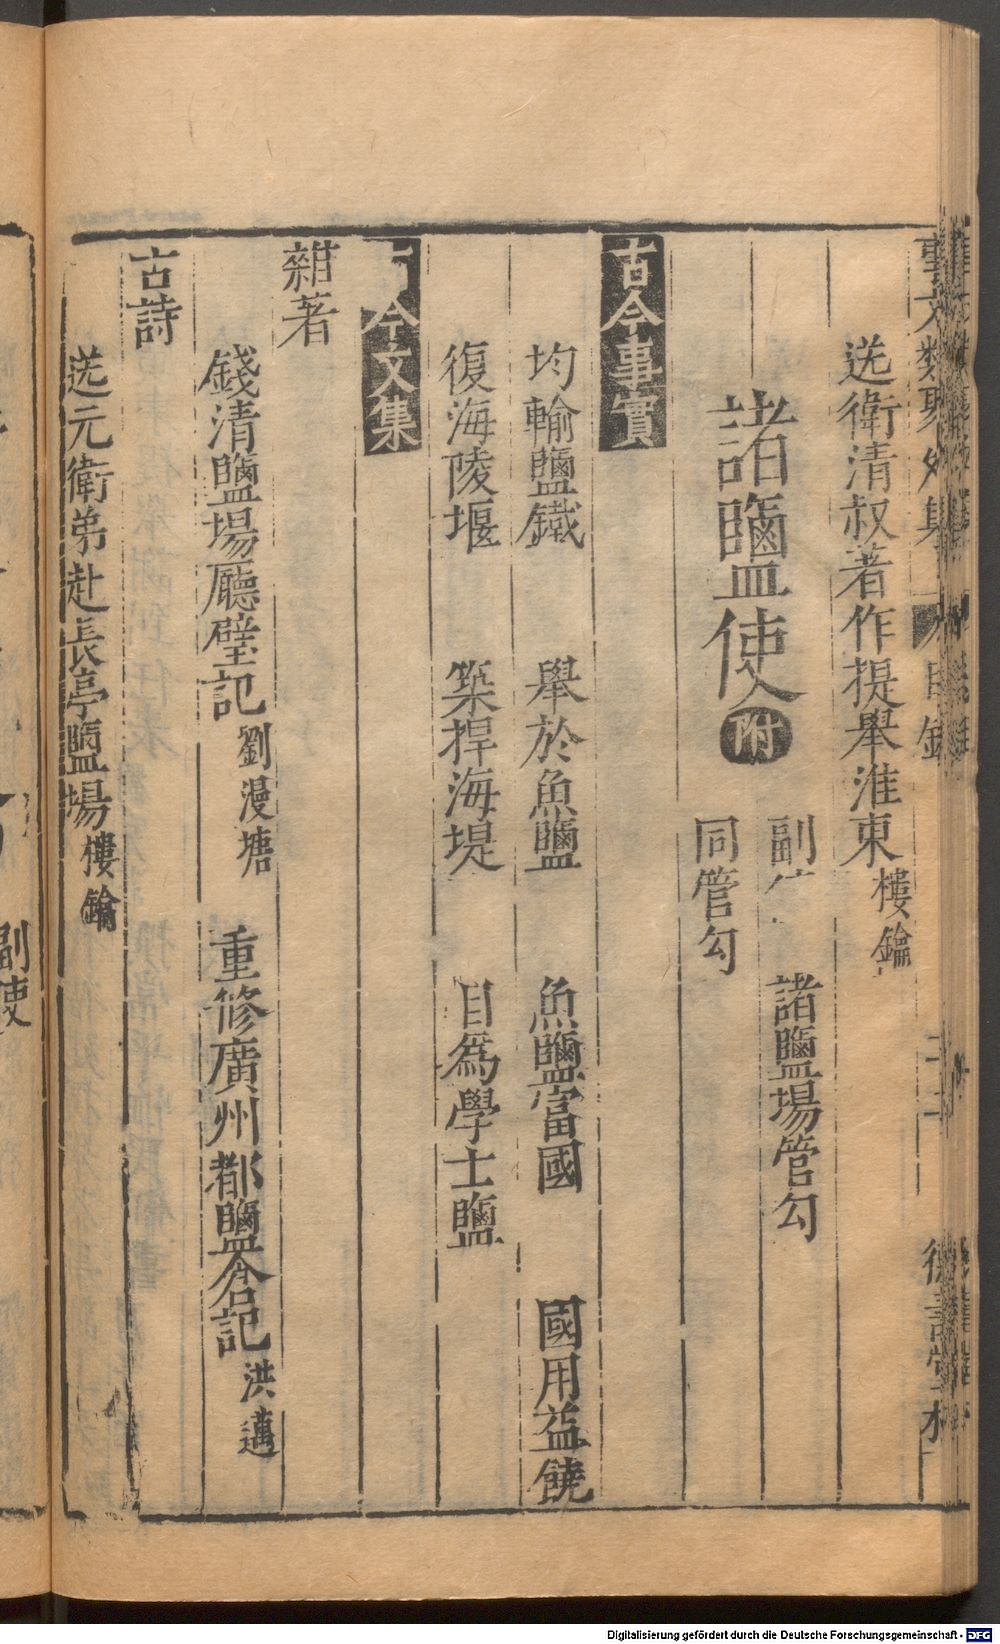 送衛清叔著作提舉淮東樓鑰
諸鹽使附
副 諸鹽場管勾
同管勾
古今事實
均輸鹽鐵 舉於魚鹽 魚鹽富國 國用益饒
復海陵堰 築捍海堤 目為學士鹽
今文集
雜著
錢清鹽場廳壁記劉漫塘 重修廣州都鹽倉記洪邁
古詩
送元衛弟赴長亭鹽場樓鑰
副使
Digitalisierung gefördert durch die Deutsche Forschungsgemeinschaft - DFG